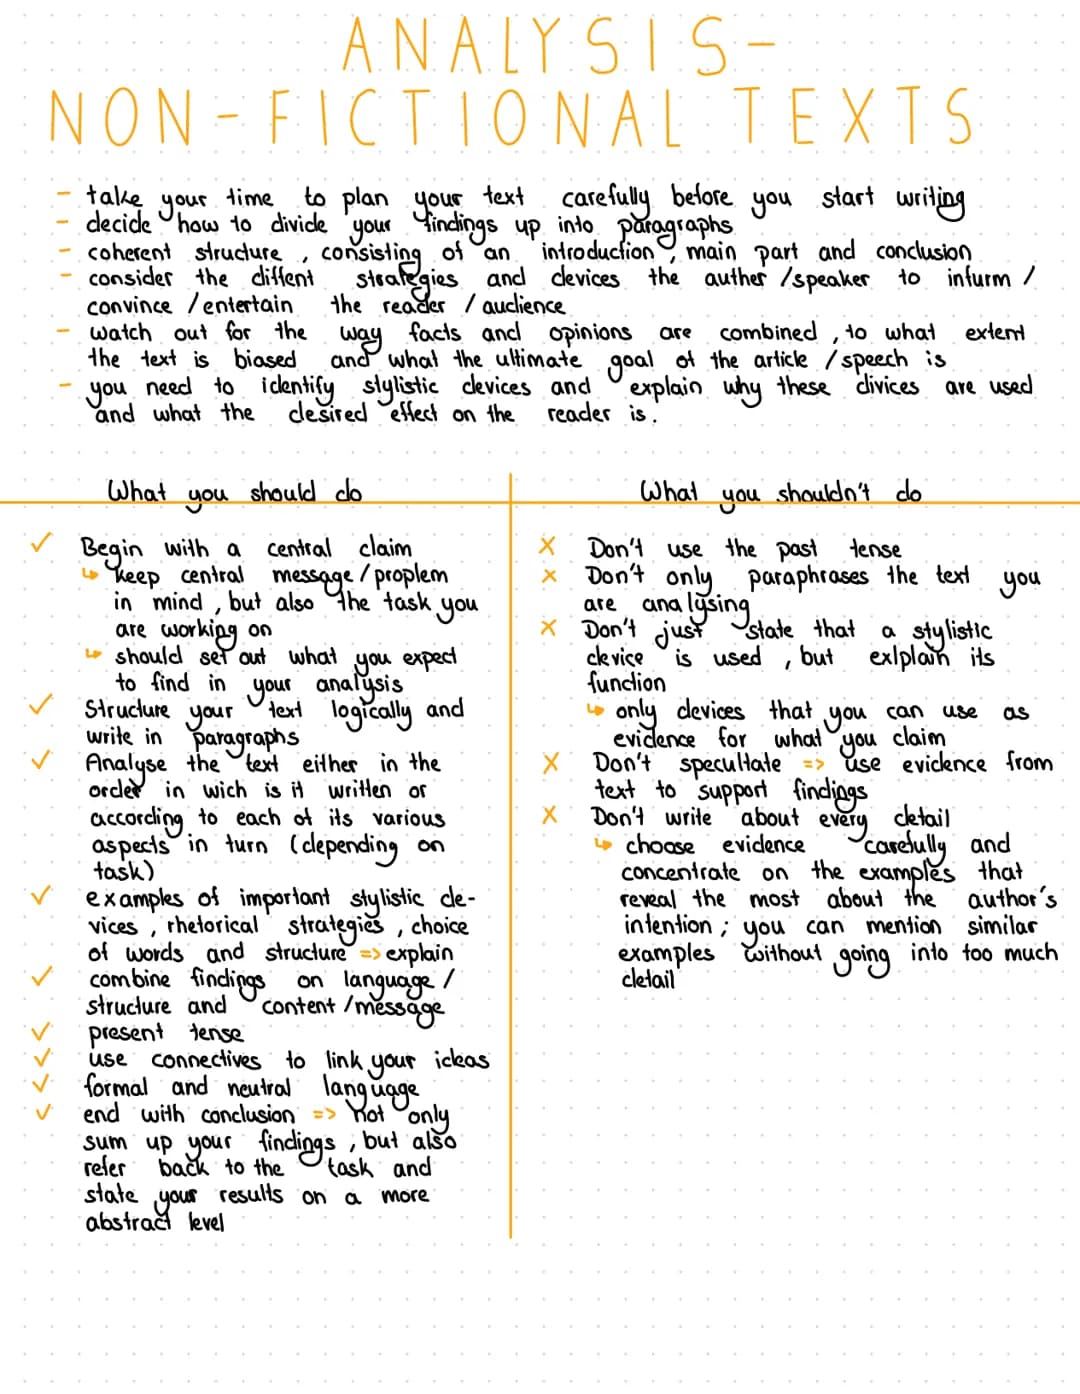 ANALYSIS-
NON-FICTIONAL TEXTS
- take your time to plan your text carefully before you start writing
- decide how to divide your findings up into paragraphs
- coherent structure, consisting of an introduction, main part and conclusion
- consider the diffent strategies and devices the auther/speaker to infurm/
convince/entertain the reader/audience
- watch out for the way facts and opinions are combined, to what extent
the text is biased and what the ultimate goal of the article/speech is
- you need to identify stylistic devices and explain why these divices are used
and what the desired effect on the reader is.
What you should do
✓ Begin with a central claim
↳ keep central message/proplem
in mind, but also the task you
are working on
↳ should set out what you expect
to find in your analysis
✓ Structure your text logically and
write in paragraphs
✓ Analyse the text either in the
order in wich is it written or
according to each of its various
aspects in turn (depending on
task)
✓ examples of important stylistic de-
vices, rhetorical strategies, choice
of words and structure => explain
✓ combine findings on language/
structure and content/message
✓ present tense
✓ use connectives to link your ideas
✓ formal and neutral language
✓ end with conclusion => not only
sum up your findings, but also
refer back to the task and
state your results on a more
abstract level
What you shouldn't do
X Don't use the past tense
X Don't only paraphrases the text you
are analysing
X Don't just state that a stylistic
device is used, but exlplain its
function
↳ only devices that you can use as
evidence for what you claim
X Don't specultate => use evidence from
text to support findings
X Don't write about every detail
↳ choose evidence carefully and
concentrate on the examples that
reveal the most about the author's
intention; you can mention similar
examples without going into too much
detail